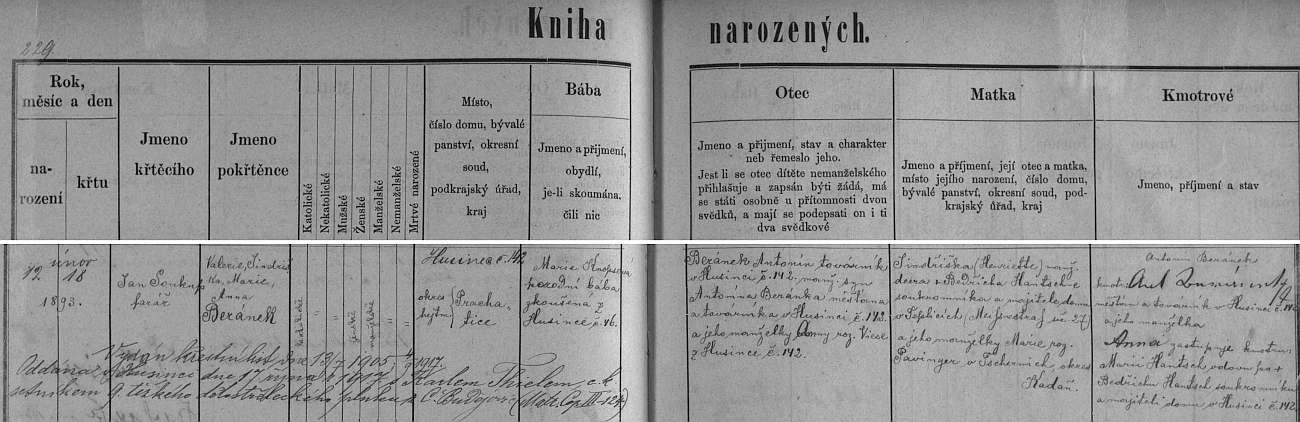 229.
Kniha narozených.
Rok,
měsíc a den
na-
rození
křtu
Jmeno
křtěcího
Jmeno
pokřtěnce
Katolické
Nekatolické
Mužské
Ženské
Manželské
Nemanželské
Mrtvé narozené
Místo,
číslo domu, bývalé
panství, okresní
soud,
podkrajský úřad,
kraj
Bába
Jmeno a přijmení,
obydlí,
je-li skoumána,
čili nic
Otec
Jmeno a přijmení, stav a charakter
neb řemeslo jeho.
Jest li se otec dítěte nemanželského
přihlašuje a zapsán býti žádá, má
se státi osobně u přítomnosti dvou
svědků, a mají se podepsati on i ti
dva svědkové
Matka
Jmeno a příjmení, její otec a matka,
místo jejího narození, číslo domu,
bývalé panství, okresní soud, pod-
krajský úřad, kraj
Kmotrové
Jmeno, příjmení a stav
únor
12 18
1893.
Jan Soukup
farář
Valerie, Jindřiš
ka, Marie,
Anna
Beránek
katolické
"
ženské
manželské
"
"
Husinec č. 142
okres
hejtm.
Pracha
tice
Marie
porodní bába
zkoušená z
Husince č. 46.
Beránek Antonín továrník
v Husinci č. 142. manž. syn
Antonína Beránka měšťana
a továrníka v Husinci č. 142.
a jeho manželky Anny roz.
z Husince č. 142.
Jindřiška (Henriette) manž.
dcera + Bedřicha Hantsch-e
soukromníka a majitele domu
v Teplicích č. 27)
a jeho manželky Marie roz.
Pavinger v Tschernich okres
Kadaň.
Antonín Beránek
měšťan a továrník v Husinci č. 142
a jeho manželka
Anna zastupuje kmotru
Marii Hantsch vdovu po +
Bedřichu Hantsch soukromníku
a majiteli domu v Husinci č. 142
Vydán křestní list dne 13/7 1905 1917.
Oddána v Husinci dne 17 října 1917 s Karlem Thielem, c. k.
setníkem 9. těžkého dělostřeleckého pluku z Č. Budějovic (Matr. Cop. III - 124)